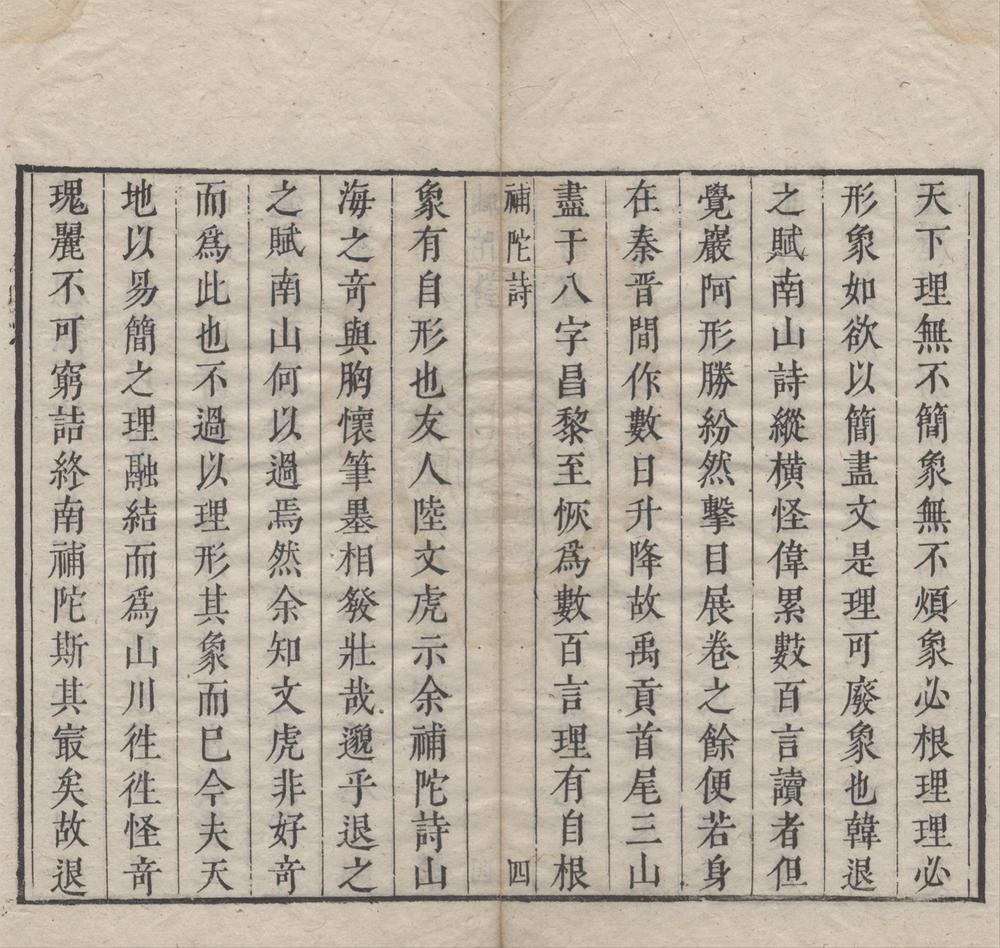 天下理無不簡象無不煩象必根理理必
形象如欲以簡盡文是理可廢象也韓退
之賦南山詩縱橫怪偉累數百言讀者但
覺巖阿形勝紛然擊目展卷之餘便若身
在秦晋間作數日升降故禹貢首尾三山
盡于八字昌黎至恢爲數百言理有自根
補陀詩 四
象有自形也友人陸文虎示余補陀詩山
海之竒與胸懷筆墨相發壯哉邈乎退之
之賦南山何以過焉然余知文虎非好竒
而爲此也不過以理形其象而巳今夫天
地以易簡之理融結而爲山川徃徃怪竒
瑰麗不可窮詰終南補陀斯其㝡矣故退